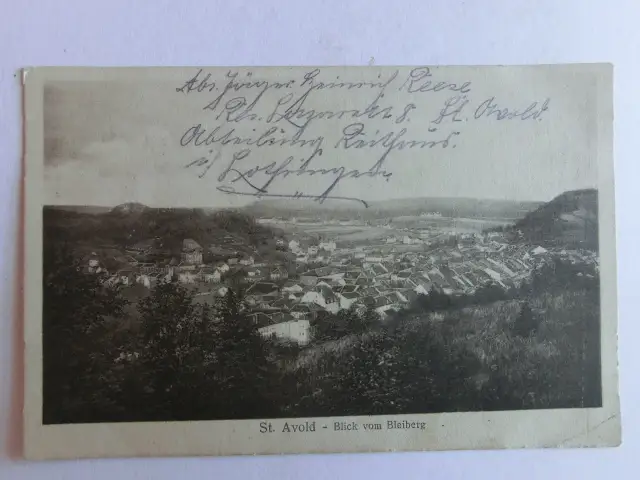 Abs. Jäger Heinrich Reese
Kr. Lazarett 8. St. Avold.
Abteilung Reithaus.
i/ Lothringen.
St. Avold - Blick vom Bleiberg